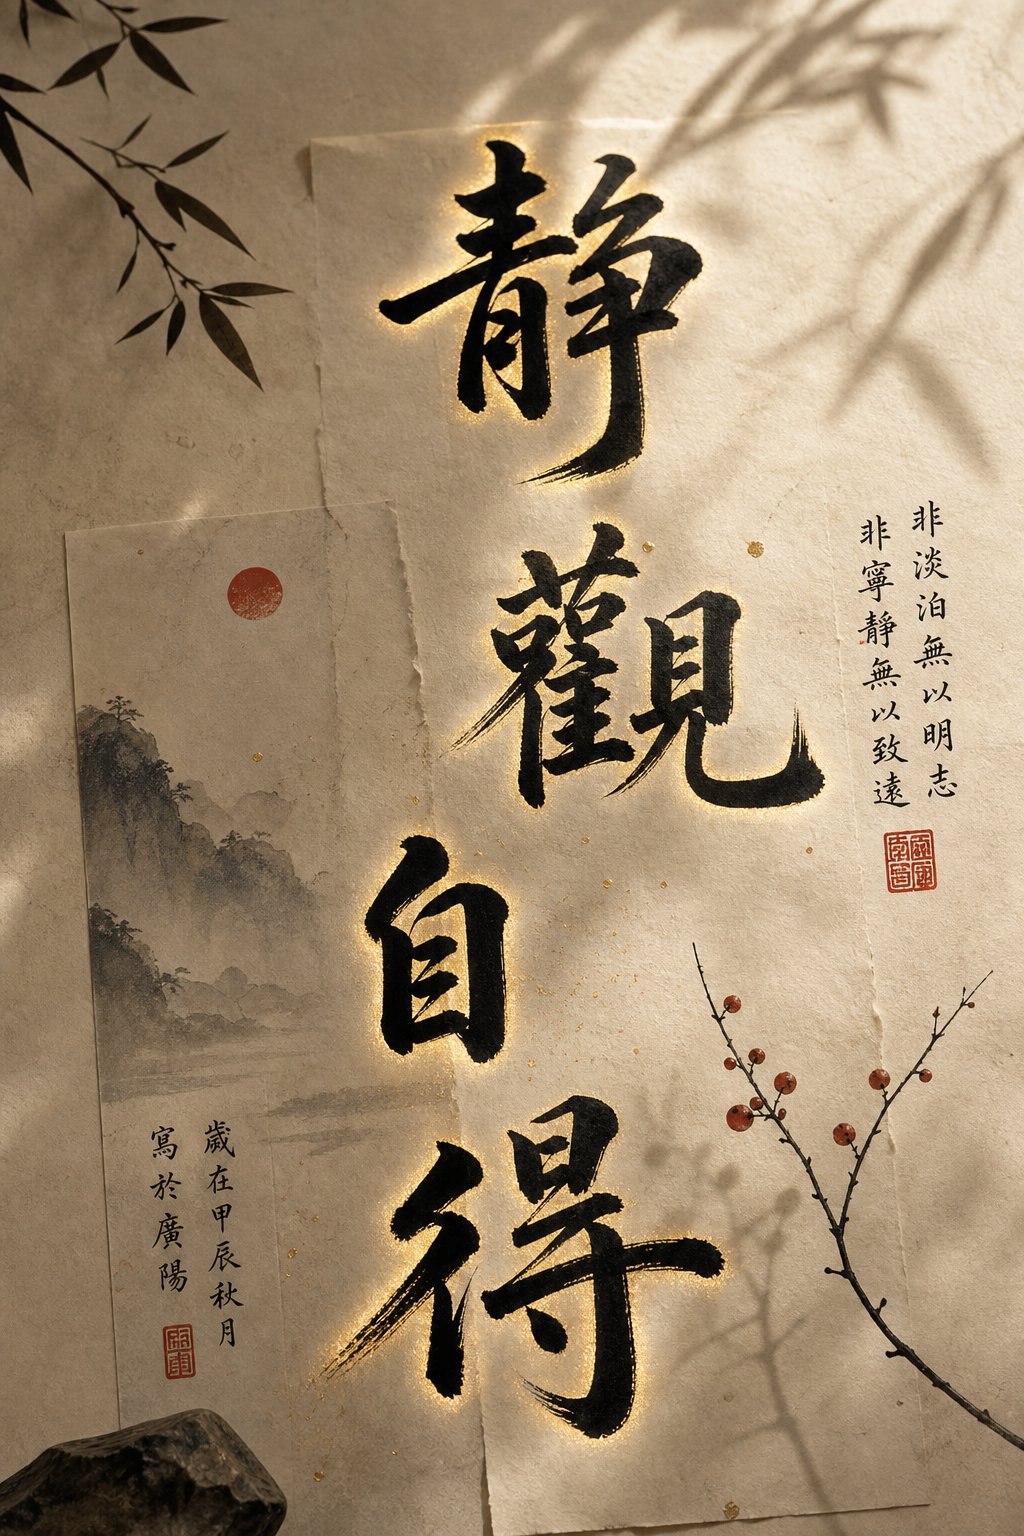 静觀自得
非淡泊無以明志
非寧靜無以致遠
歲在甲辰秋月
寫於廣陽